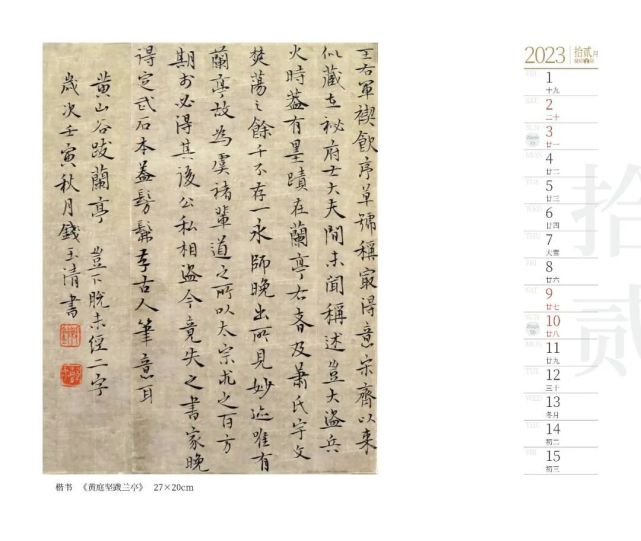 王右軍禊飲序草號稱最得意宋齊以來
似藏在祕府士大夫間未聞稱述豈大盜兵
火時蓋有墨蹟在蘭亭右者及蕭氏宇文
焚蕩之餘千不存一永師晚出所見妙迹唯有
蘭亭故為虞褚輩道之所以太宗求之百方
期於必得其後公私相盜今竟失之書家晚
得定武石本蓋髣髴存古人筆意耳
黃山谷跋蘭亭 豈下脫未經二字
歲次壬寅秋月錢玉清書
楷书 《黄庭坚跋兰亭》 27×20cm
2023 拾贰月
拾贰
FRI 1
十九
SAT 2
二十
SUN 3
廿一
MON 4
廿二
TUE 5
廿三
WED 6
廿四
THU 7
大雪
FRI 8
廿六
SAT 9
廿七
SUN 10
廿八
MON 11
廿九
TUE 12
三十
WED 13
冬月
THU 14
初二
FRI 15
初三